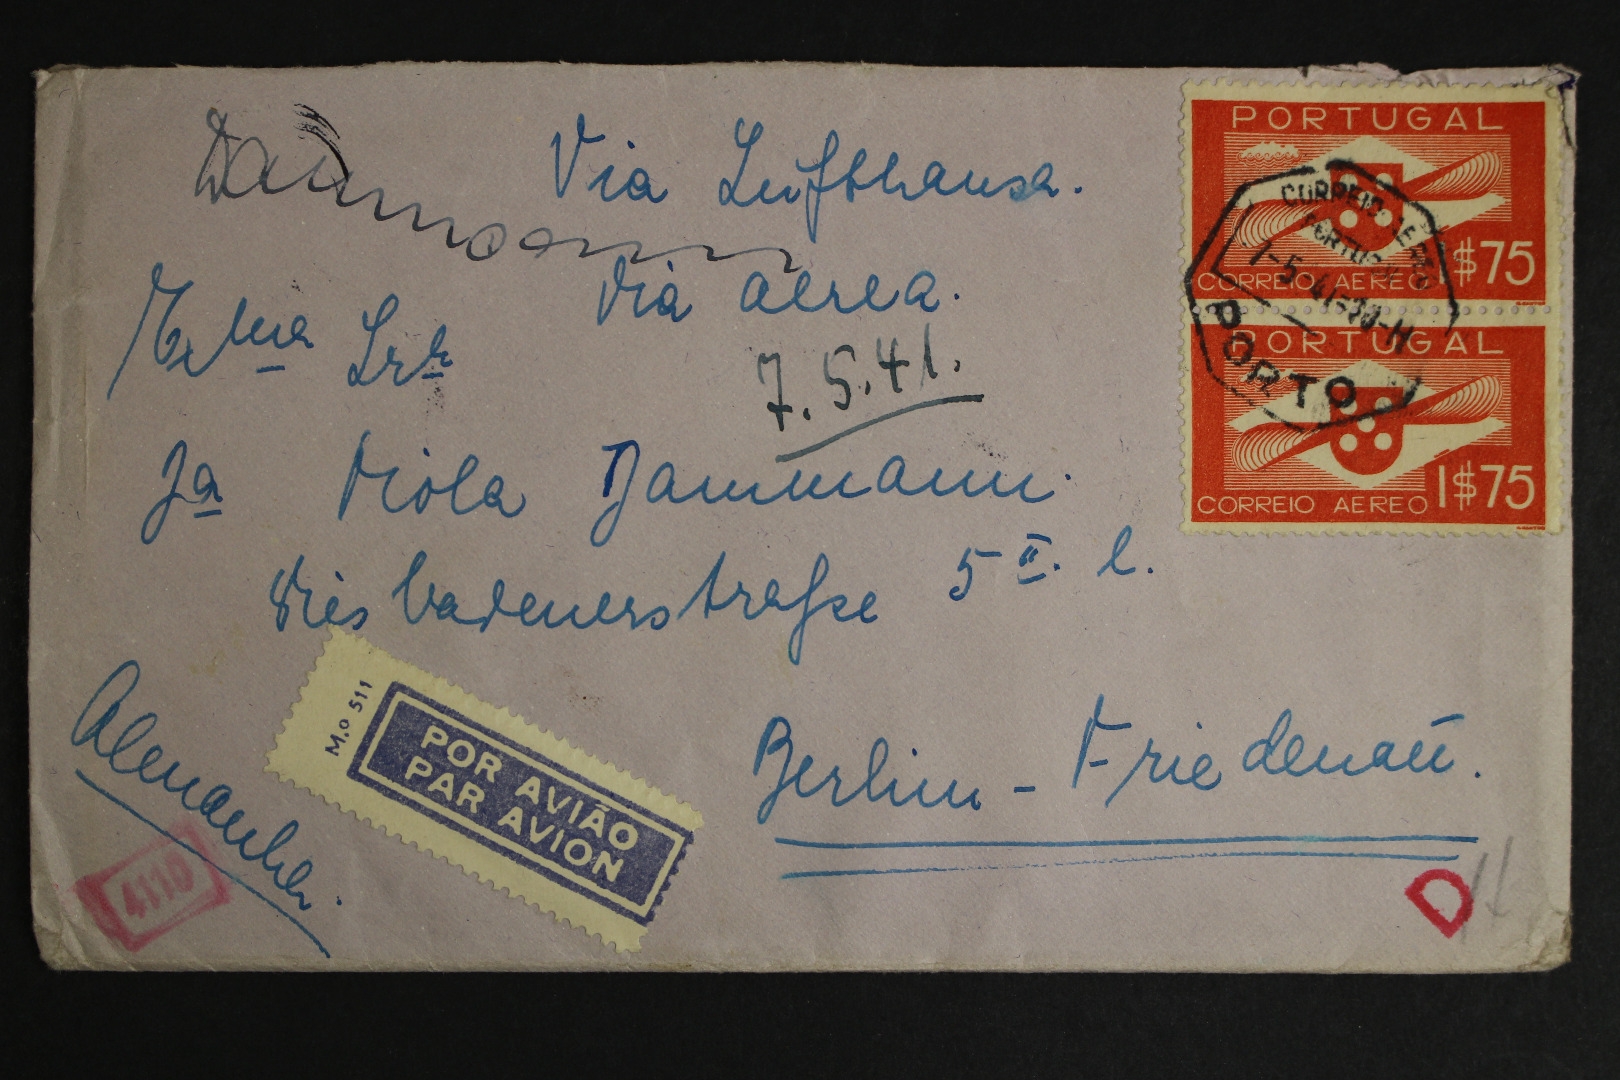 Dammann
Via Lufthansa.
Via aerea.
Exma Snra
7.5.41.
Da Viola Dammann.
Wiesbadenerstraße 5 II. l.
Berlin - Friedenau.
Alemanha.
M.o 511
POR AVIÃO
PAR AVION
4110
D
PORTUGAL
CORREIO AEREO 1$75
PORTUGAL
CORREIO AEREO 1$75
CORREIO AEREO
PORTUGAL
7-5-41-20-H
PORTO